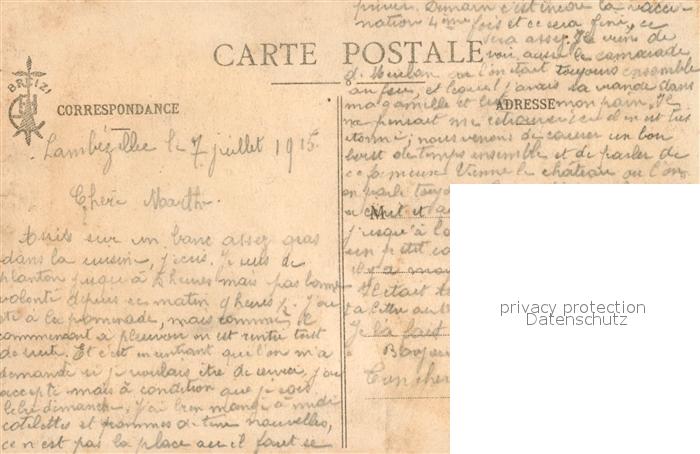 priver. Demain c'est encore la vacci-
nation 4ème fois et ce sera fini, ce
sera assez. Je viens de
CARTE POSTALE
voir aussi le camarade
d. où l'on était toujours ensemble
BREIZ
au feu, et lequel j'avais la viande dans
CORRESPONDANCE
ma gamelle et lui ADRESSE mon pain. Il
ne pensait me retrouver ici il en est très
Lambézellec le 7 juillet 1915
étonné; nous venons de causer un bon
bout de temps ensemble et de parler de
ce fameux Vienne le château où l'on
Chère Marth.
en parle
M
Assis sur un banc assez gras
jusqu'à
dans la cuisine, j'écris. Je suis de
un petit
planton jusqu'à 5 heures mais pas bonne
il a
volonté depuis ce matin 9 heures ½. J'ai
Il était
été à la promenade, mais comme il
ta lettre
commençait à pleuvoir on est rentré tout
Je la
de suite. Et c'est en entrant que l'on m'a
Bonjour
demandé si je voulais être de service, j'ai
Ton cher
accepté mais à condition que je sois
libre dimanche. J'ai bien mangé à midi
cotelettes et pommes de terre nouvelles,
ce n'est pas la place où il faut se
privacy protection
Datenschutz